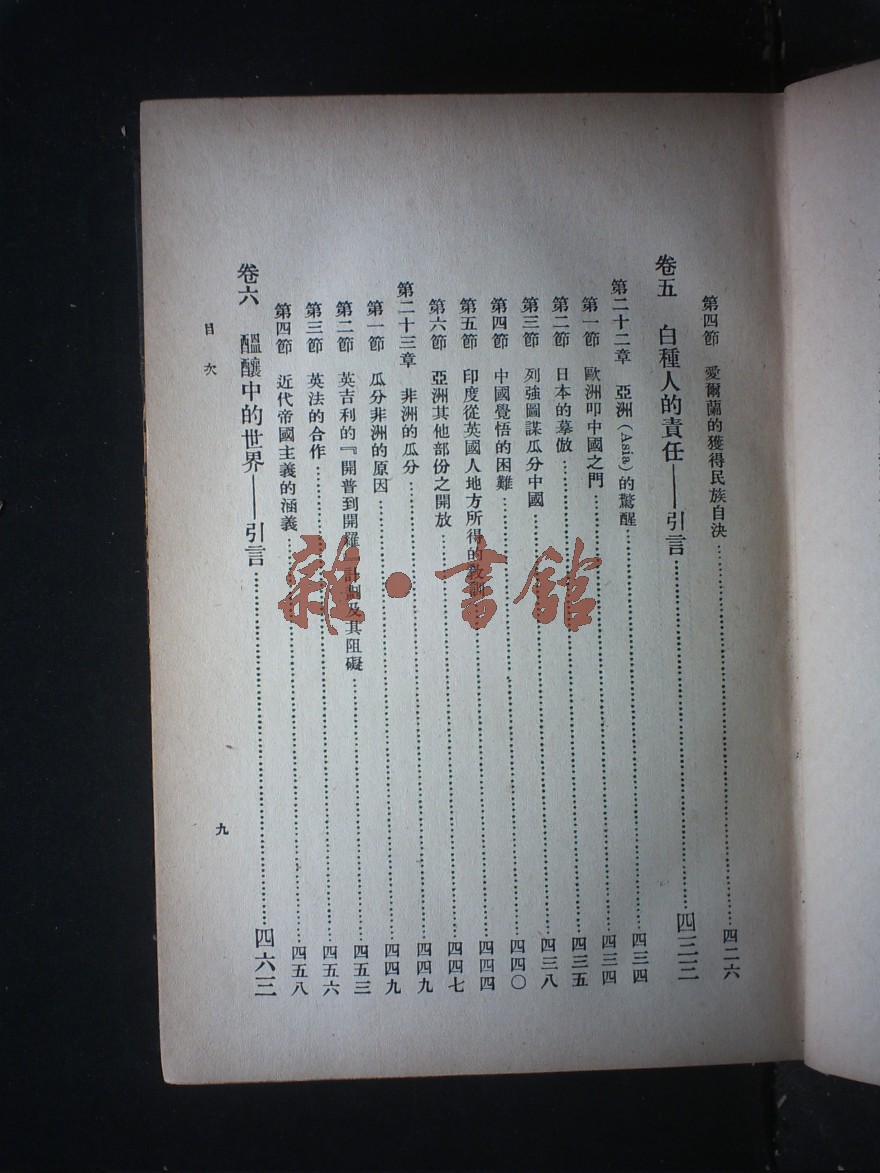 第四節 愛爾蘭的獲得民族自決……四二六
卷五 白種人的責任——引言……四三三
第二十二章 亞洲(Asia)的驚醒……四三四
第一節 歐洲叩中國之門……四三四
第二節 日本的摹倣……四三五
第三節 列強圖謀瓜分中國……四三八
第四節 中國覺悟的困難……四四〇
第五節 印度從英國人地方所得的教訓……四四四
第六節 亞洲其他部份之開放……四四七
第二十三章 非洲的瓜分……四四九
第一節 瓜分非洲的原因……四四九
第二節 英吉利的『開普到開羅』計劃及其阻礙……四五三
第三節 英法的合作……四五六
第四節 近代帝國主義的涵義……四五八
卷六 醞釀中的世界——引言……四六三
目次
九
雜·書館